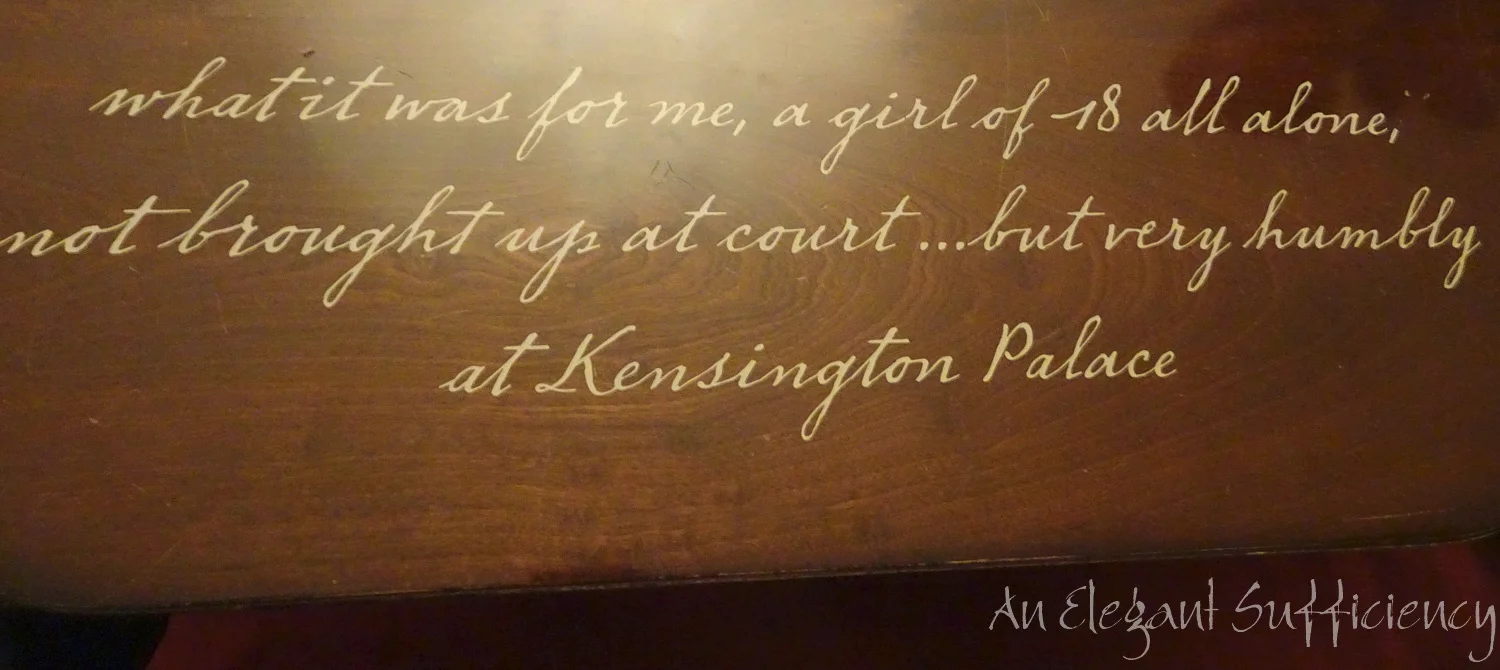 what it was for me, a girl of 18 all alone,
not brought up at court ... but very humbly
at Kensington Palace
An Elegant Sufficiency